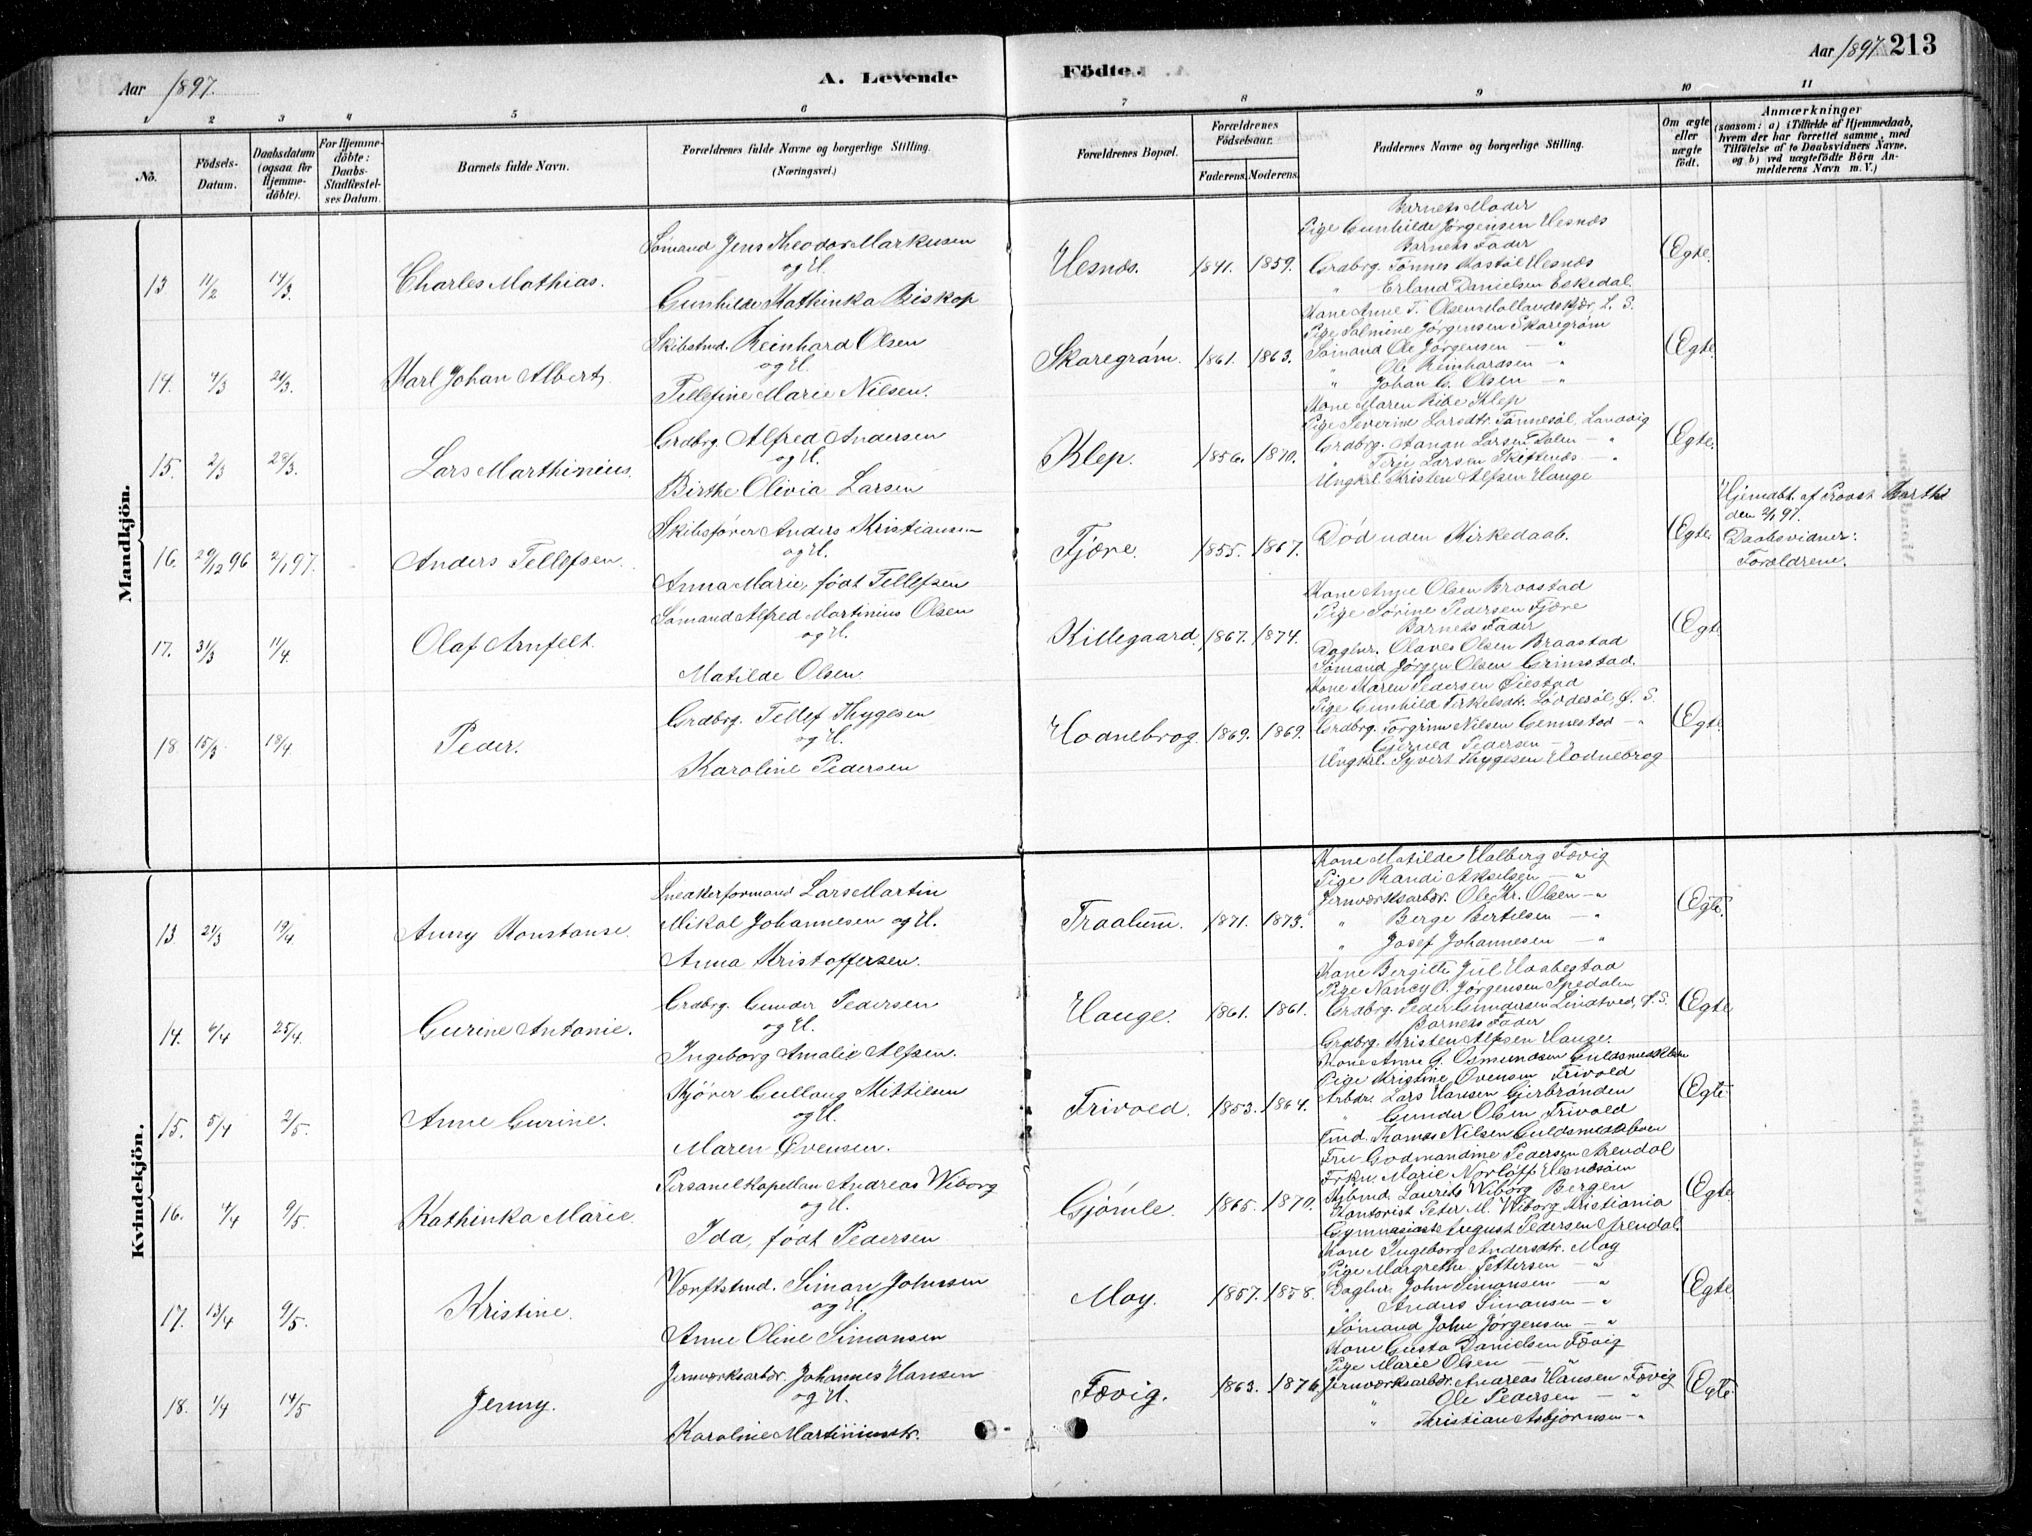 Aar 1897.
A. Levende
Födte.
Aar 1897. 213
1 2 3 4 5 6 7 8 9 10 11
No.
Födsels-Datum.
Daabsdatum (ogsaa for Hjemmedöbte).
For Hjemmedöbte: Daabs-Stadfæstelses Datum.
Barnets fulde Navn.
Forældrenes fulde Navne og borgerlige Stilling. (Næringsvei.)
Forældrenes Bopæl.
Forældrenes Födselsaar.
Faderens. Moderens.
Faddernes Navne og borgerlige Stilling.
Om ægte eller uægte födt.
Anmærkninger
(saasom: a) i Tilfælde af Hjemmedaab, hvem der har forrettet samme, med Tilföielse af to Daabsvidners Navne, og b) ved uægtefödte Börn Anmelderens Navn m. V.)
Mandkjön.
13 11/2 14/3 Charles Mathias.
Sømand Jens Theodor Markusen
og H.
Gunhilde Kathinka Biskop
Hesnæs. 1841. 1859.
Barnets Moder
Pige Gunhilde Jørgensen Hesnæs
Barnets Fader
Grdbrg. Tønnes Hostøl Hesnæs
" Erland Danielsen Eskedal.
Ægte.
14. 4/3 21/3 Karl Johan Albert.
Skibstmd. Reinhard Olsen
og H.
Tellefine Marie Nilsen.
Skaregrøm. 1861. 1863.
Kone Anne T. Olsen Hollandskjær, L. S.
Pige Salmine Jørgensen Skaregrøm
Sømand Ole Jørgensen — "
" Ole Reinhardsen — "
" Johan G. Olsen — "
Ægte.
15. 2/3 28/3. Lars Marthinius.
Grdbrg. Alfred Andersen
og H.
Birthe Olivia Larsen
Klep. 1856. 1870.
Kone Maren Ribe Klep
Pige Severine Larsdtr. Tønnesøl, Landvig
Grdbrg. Aanon Larsen Dalen — "
" Terje Larsen Skiftenæs — "
Ungkrl. Kristen Alfsen Hauge
Ægte.
16. 29/12 96 2/1 97. Anders Tellefsen.
Skibsfører Anders Kristiansen
og H.
Anna Marie, født Tellefsen
Fjære. 1855. 1867.
Død uden Kirkedaab.
Ægte.
Hjemdbt. af Provst Barth
den 2/1 97.
Daabsvidner:
Forældrene.
17. 31/3 11/4. Olaf Arnfelt.
Sømand Alfred Martinius Olsen
og H.
Matilde Olsen
Killegaard. 1867. 1874.
Kone Anne Olsen Braastad
Pige Sørine Pedersen Fjære
Barnets Fader
Daglnr. Olaves Olsen Braastad
Sømand Jørgen Olsen Grimstad.
Ægte
18. 15/3. 18/4 Peder.
Grdbrg. Tellef Thygesen
og H.
Karoline Pedersen
Hodnebrog. 1869. 1869.
Kone Maren Pedersen Øiestad
Pige Gunhild Terkelsdtr. Løddesøl, Ø. S.
Grdbrg. Torgrim Nilsen Gennestad — "
" Pedersen —
Ungkrl. Syvert Thygesen Hodnebrog
Ægte
Kvindekjön.
13 21/3 19/4. Anny Konstanse.
Sneakerformand Lars Martin
Mikal Johannesen og H.
Anna Kristoffersen.
Traalum. 1871. 1873.
Kone Matilde Halberg Fævig
Pige Randi Akselsen — "
Jernværksarbdr. Ole Kr. Olsen — "
" Berge Bertelsen — "
" Josef Johannesen — "
Ægte.
14. 6/4 25/4. Gurine Antonie.
Grdbrg. Gunder Pedersen
og H.
Ingeborg Amalie Alfsen.
Hauge. 1861. 1861.
Kone Bergitte Jul Haabestad
Pige Nancy O. Jørgensen Spedalen
Grdbrg. Peder Gundersen Lindtved, Ø. S.
Barnets Fader
Grdbrg. Kristen Alfsen Hauge.
Ægte
15. 5/4 2/5. Anne Gurine.
Kjører Gullaug Mikkelsen
og H.
Maren Ovensen.
Frivold. 1853. 1864.
Kone Anne G. Osmundsen Guldsmedkleven
Pige Kristine Ovensen Frivold
Arbdr. Lars Hansen Gjerbrønden
" Gunder Olsen Frivold
Tmd. Thomas Nilsen Guldsmedkleven
Ægte
16. 4/4 9/5. Kathinka Marie.
Personelkapellan Andreas Wiborg
og H.
Ida, født Pedersen
Gjømle. 1865. 1870.
Fru Godmandine Pedersen Arendal
Frkn. Marie Norløff Hesnæsøen
Kjbmd. Laurits Wiborg Bergen
Kontorist Peter M. Wiborg Kristiania
Gymnasiast August Pedersen Arendal.
Ægte
17. 13/4 9/5. Kristine.
Værftstmd. Simon Johnsen
og H.
Anne Oline Simonsen
Moy. 1857. 1858.
Kone Ingeborg Andersdtr. Moy
Pige Margrethe Pettersen — "
Daglnr. John Simonsen — "
" Anders Simonsen — "
Sømand John Jørgensen — "
Ægte
18. 1/4 14/5 Jenny.
Jernværksarbdr. Johannes Hansen
og H.
Karoline Martiniusdtr.
Fævig. 1863. 1876.
Kone Gusta Danielsen Fævig
Pige Marie Olsen —
Jernværksarbdr. Andreas Hansen Fævig
" Ole Pedersen — "
" Kristian Asbjørnsen — "
Ægte